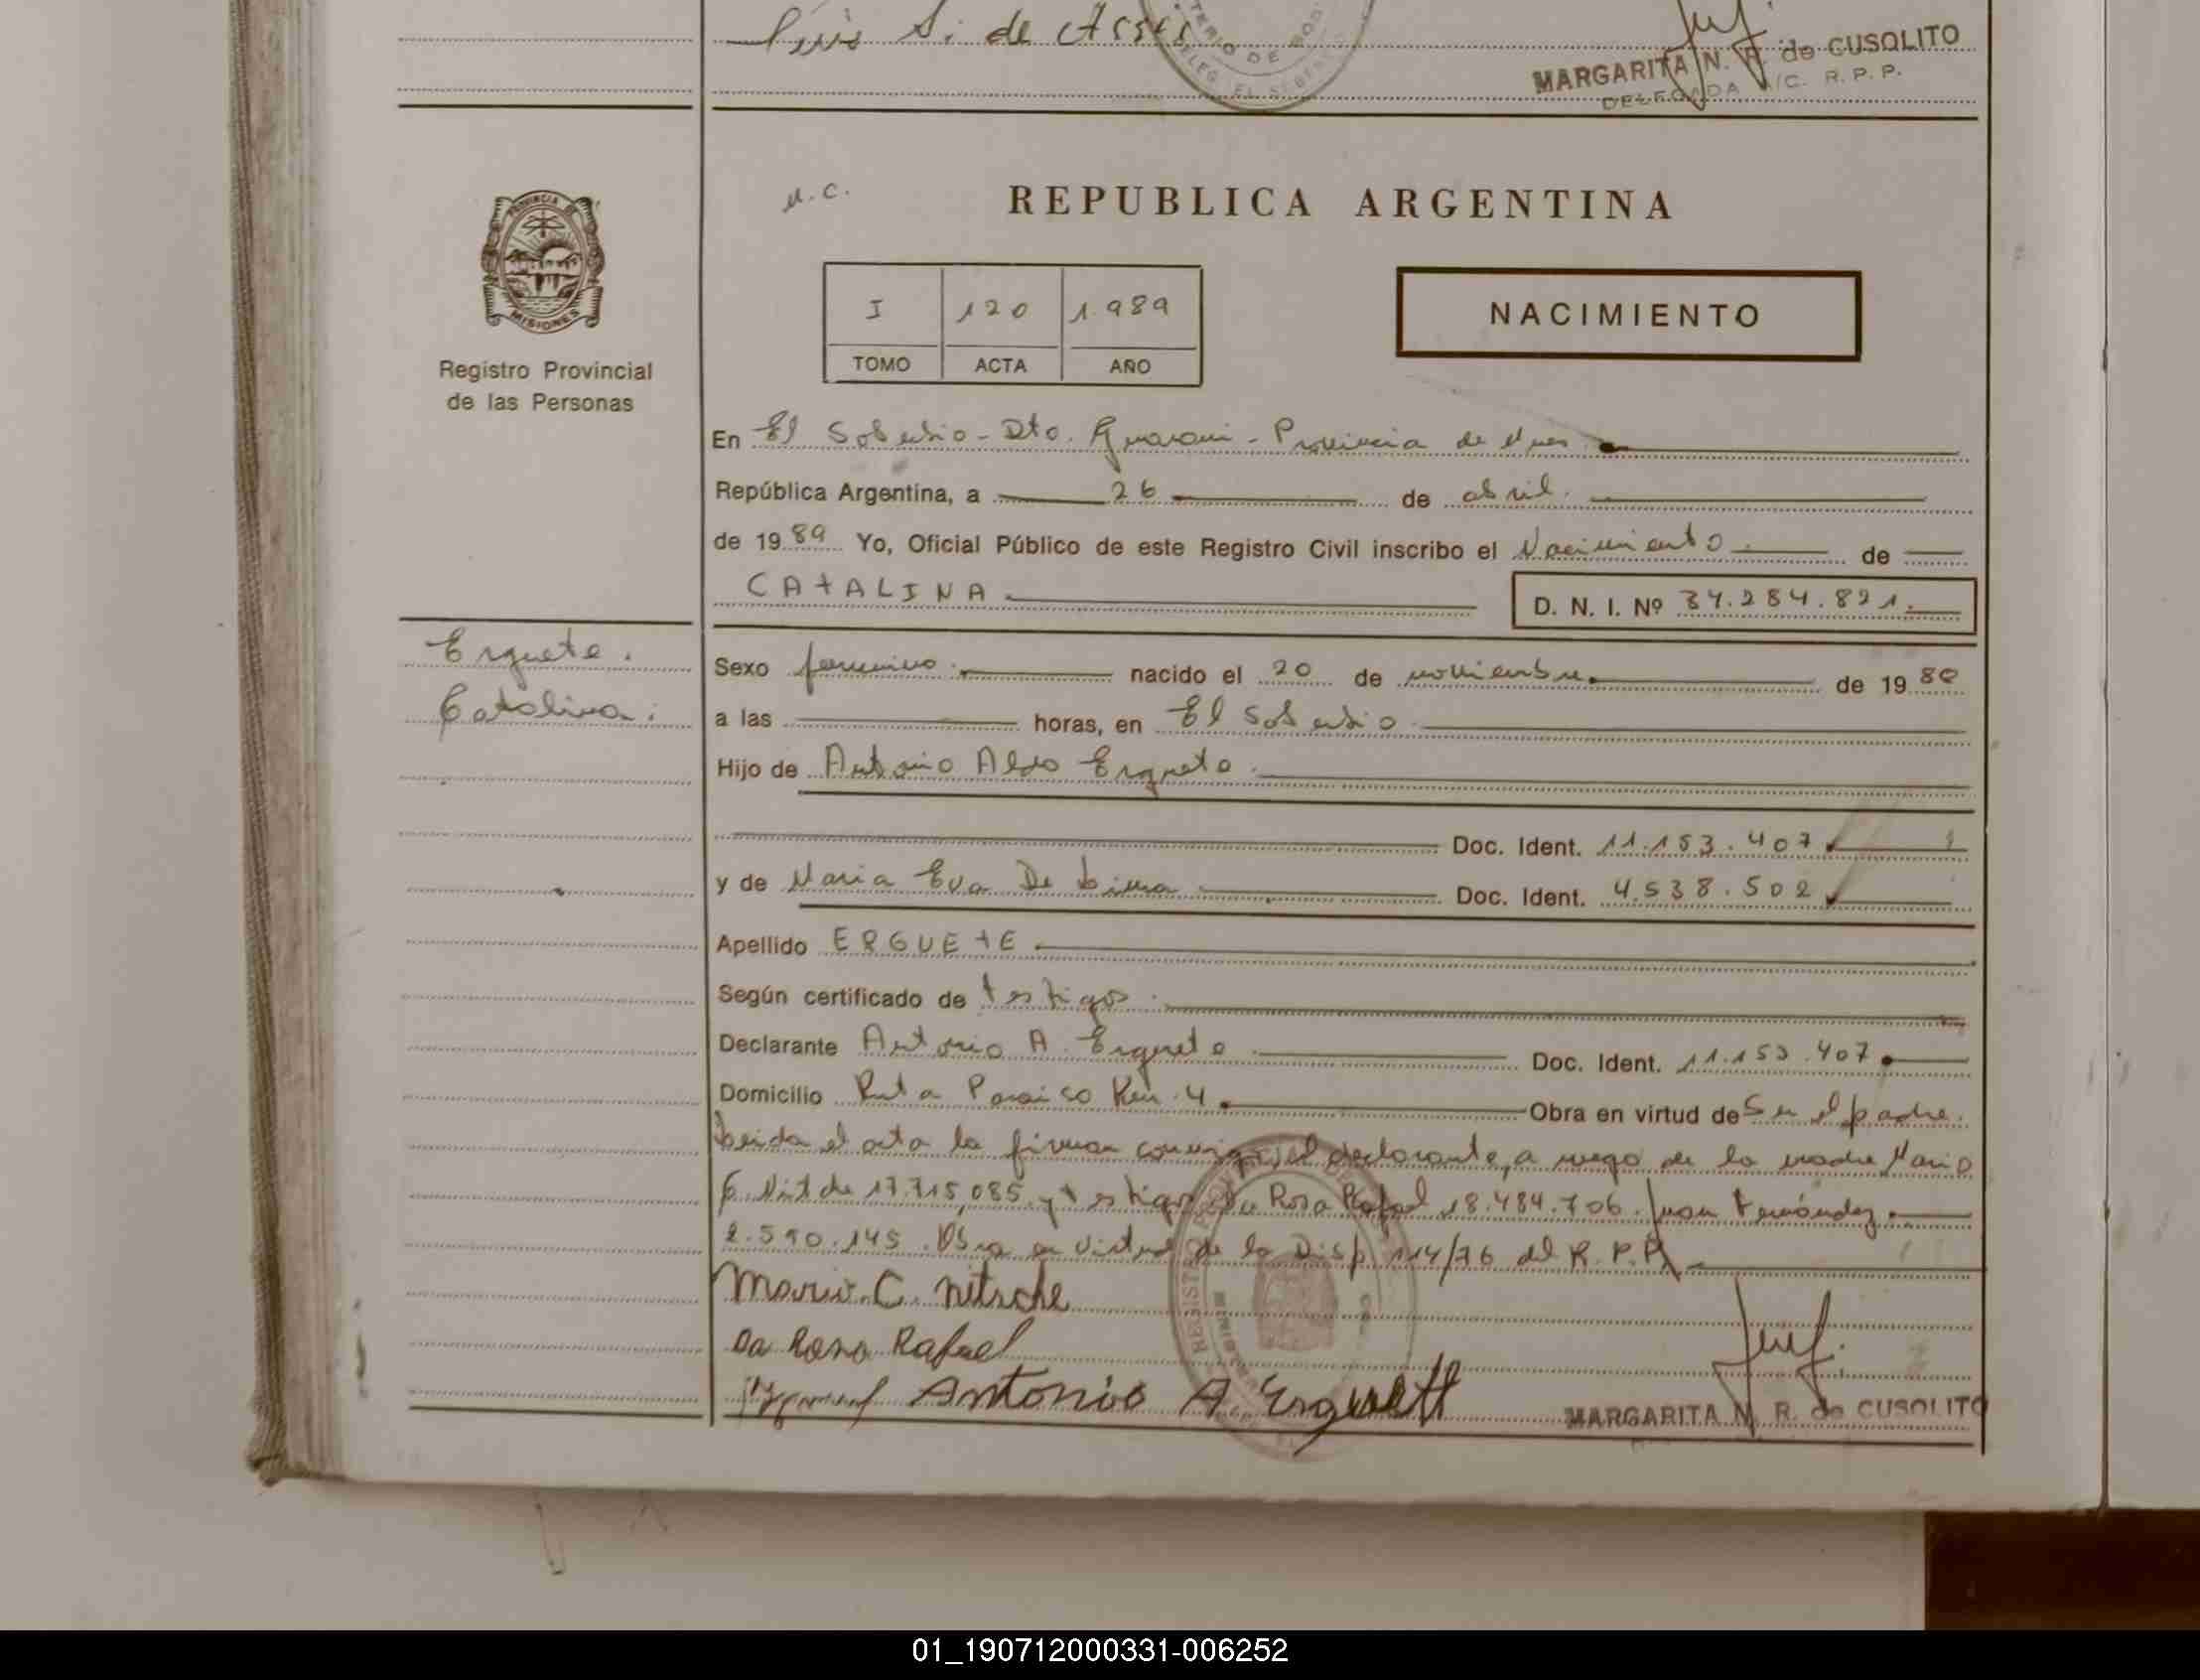 Luis S. de Assis
MARGARITA N. R. de CUSOLITO
DELEGADA A/C. R. P. P.
PROVINCIA DE
MISIONES
Registro Provincial
de las Personas
REPUBLICA ARGENTINA
I 120 1.989
TOMO ACTA AÑO
NACIMIENTO
En El Soberbio - Dto. Guarani - Provincia de Mnes
República Argentina, a 26 de abril.
de 1989 Yo, Oficial Público de este Registro Civil inscribo el Nacimiento de
CATALINA
D. N. I. Nº 34.284.821.
Erguete.
Catalina.
Sexo femenino. nacido el 20 de noviembre de 1988
a las horas, en El Soberbio
Hijo de Antonio Aldo Erguete
Doc. Ident. 11.153.407
y de Maria Eva De Lima Doc. Ident. 4.538.502
Apellido ERGUETE
Según certificado de testigos.
Declarante Antonio A. Erguete Doc. Ident. 11.153.407
Domicilio Ruta Paraiso Km. 4 Obra en virtud de Ser el padre.
Leida el acta la firman conmigo, el declarante, a ruego de la madre Mario
C. Nitsche 17.715.085 y testigos Da Rosa Rafael 18.484.706. Juan Fernández
2.590.145. Obra en virtud de la Disp. 114/76 del R. P. P.
Mario. C. nitsche
Da Rosa Rafael
Antonio A. Erguett
MARGARITA N. R. de CUSOLITO
01_190712000331-006252